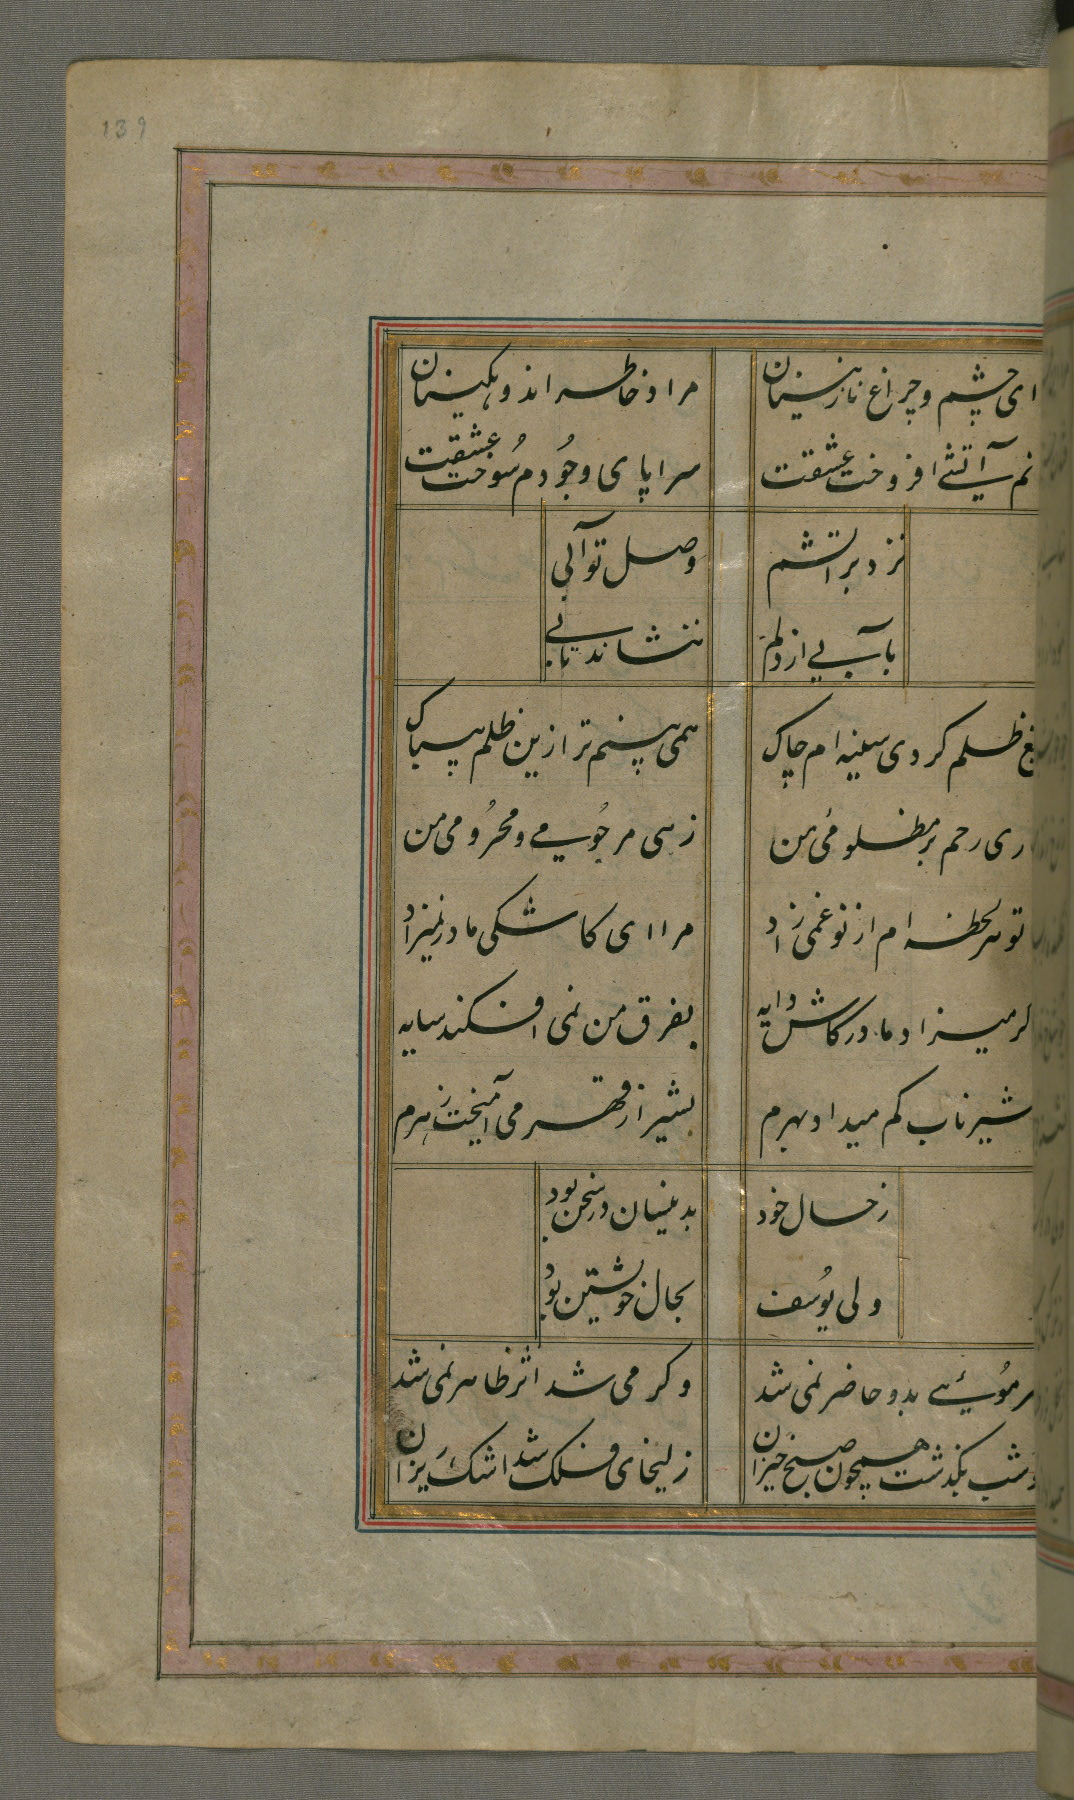 139
ای چشم و چراغ نازنینان مراد خاطر اندوهگینان
آتشی افروخت عشقت سراپای وجودم سوخت عشقت
نزد بر آتشم وصل تو آبی
بآبی از دلم ننشاند تابی
ظلم کردی سینه ام چاک همی بینم ترا زین ظلم بیباک
ری رحم بر مظلومی من زهی مرجومی و محرومی من
تو هر لحظه ام از نو غمی زاد مرا ای کاشکی مادر نمیزاد
گر میزاد مادر کاش دایه بفرق من نمی افکند سایه
شیر ناب کم میداد بهرم بشیر از قهر می آمیخت زهرم
ز حال خود بدینسان در سخن بود
ولی یوسف بحال خویشتن بود
سر موئی بدو حاضر نمی شد وگر می شد اثر ظاهر نمی شد
شب بگذشت همچون صبح خیزان زلیخای فلک شد اشک ریزان